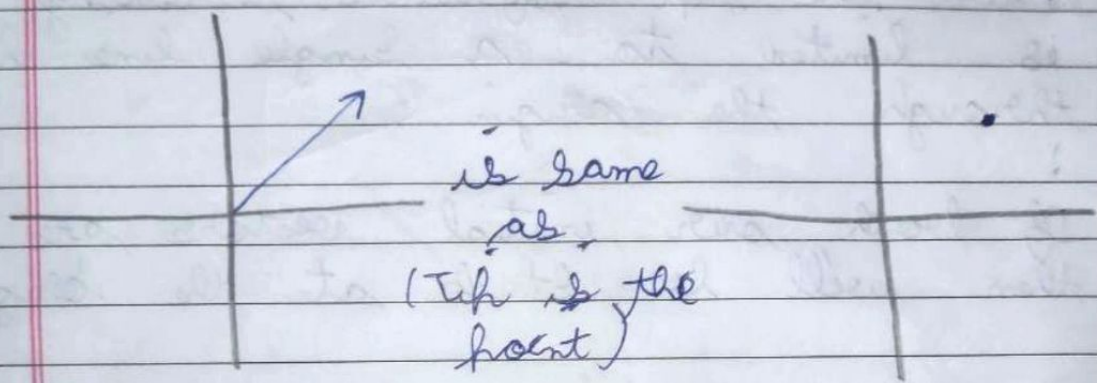 is same
as
(Tip is the
point)